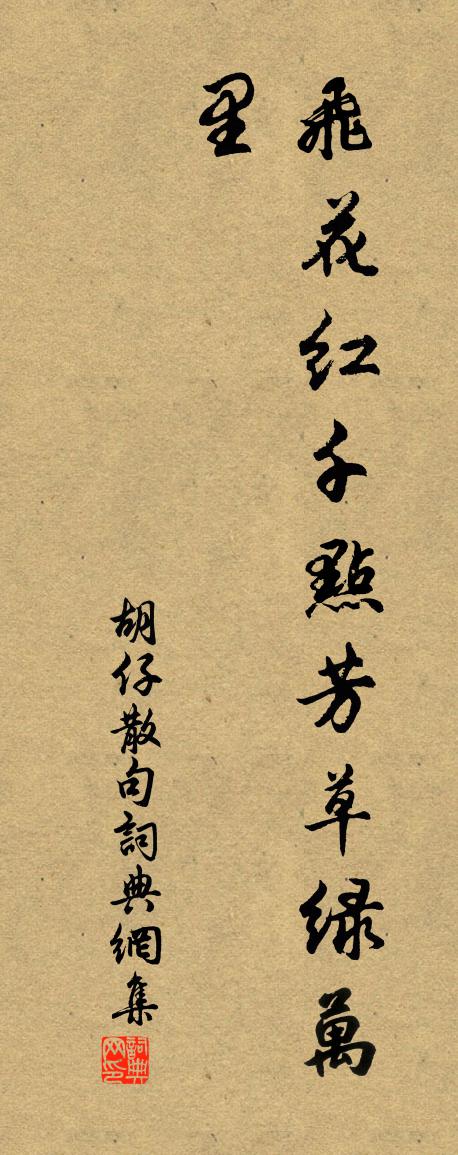 飛花紅千點芳草緑萬
里
胡仔散句詞典網集
詞典
网印